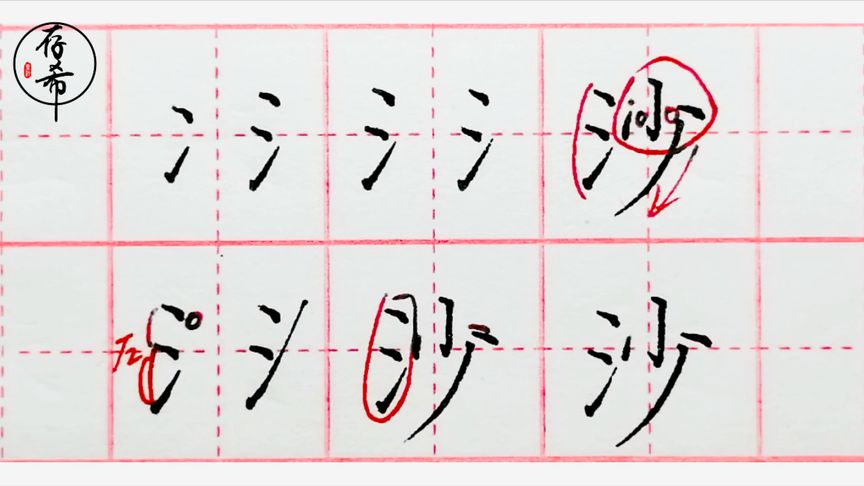 存希
冫 氵 氵 氵 沙
氵 氵 沙 沙